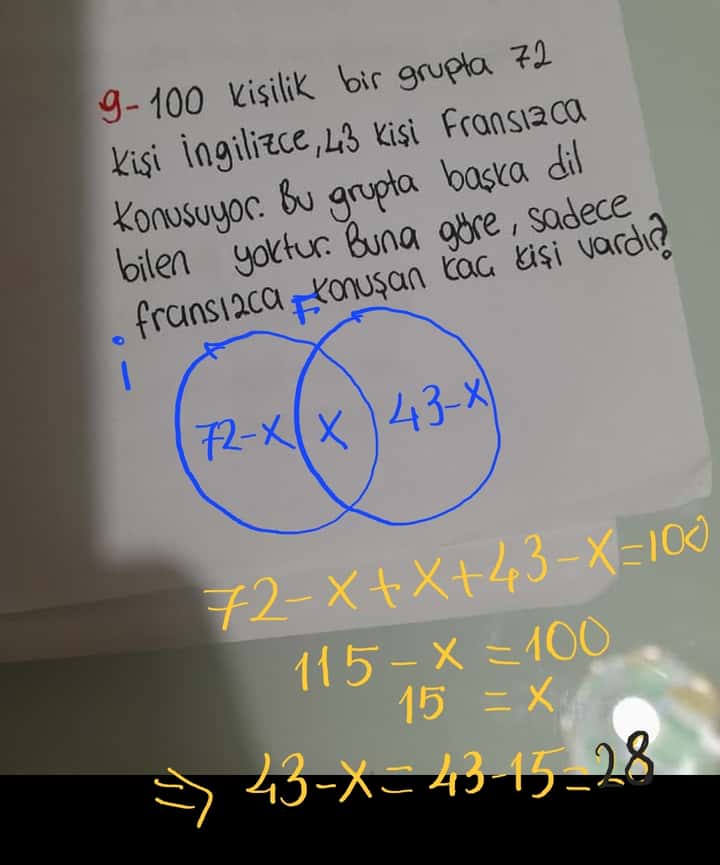 9-100 kişilik bir grupta 72
kişi ingilizce, 43 kişi Fransızca
konusuyor. Bu grupta başka dil
bilen yoktur. Buna göre, sadece
fransızca konuşan kaç kişi vardır?
İ
F
72-x
x
43-x
72-x+x+43-x=100
115-x=100
15 = x
⇒ 43-x=43-15=28